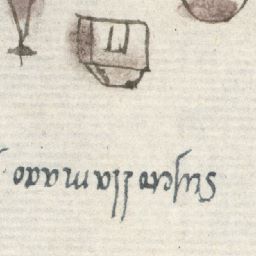 Sujeto llamado